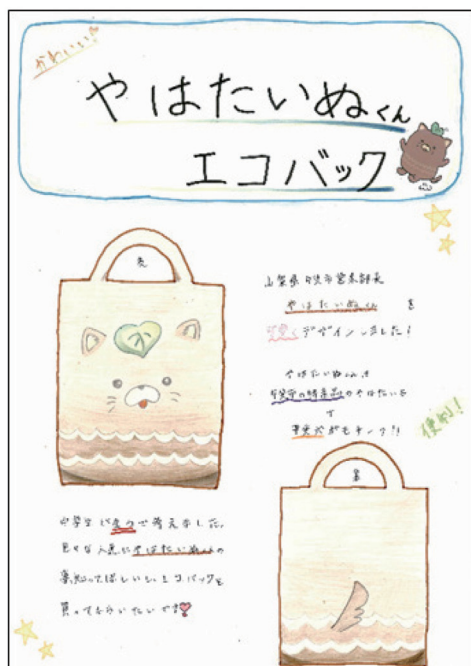 かわいい
やはたいぬくん
エコバック
表
山梨県甲斐市営業部長
やはたいぬくん を
可愛くデザインしました!
やはたいぬくんは
甲斐市の特産品のやはたいも
と
甲斐犬がモチーフ!!
便利!
裏
中学生 考えました。
色々な人達にやはたいぬくんの
事知ってほしいし、エコバックを
買ってもらいたいです